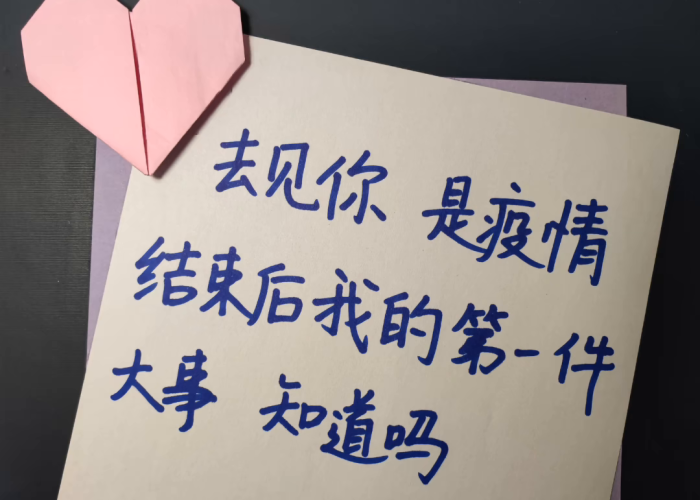 去见你 是疫情
结束后我的第一件
大事 知道吗